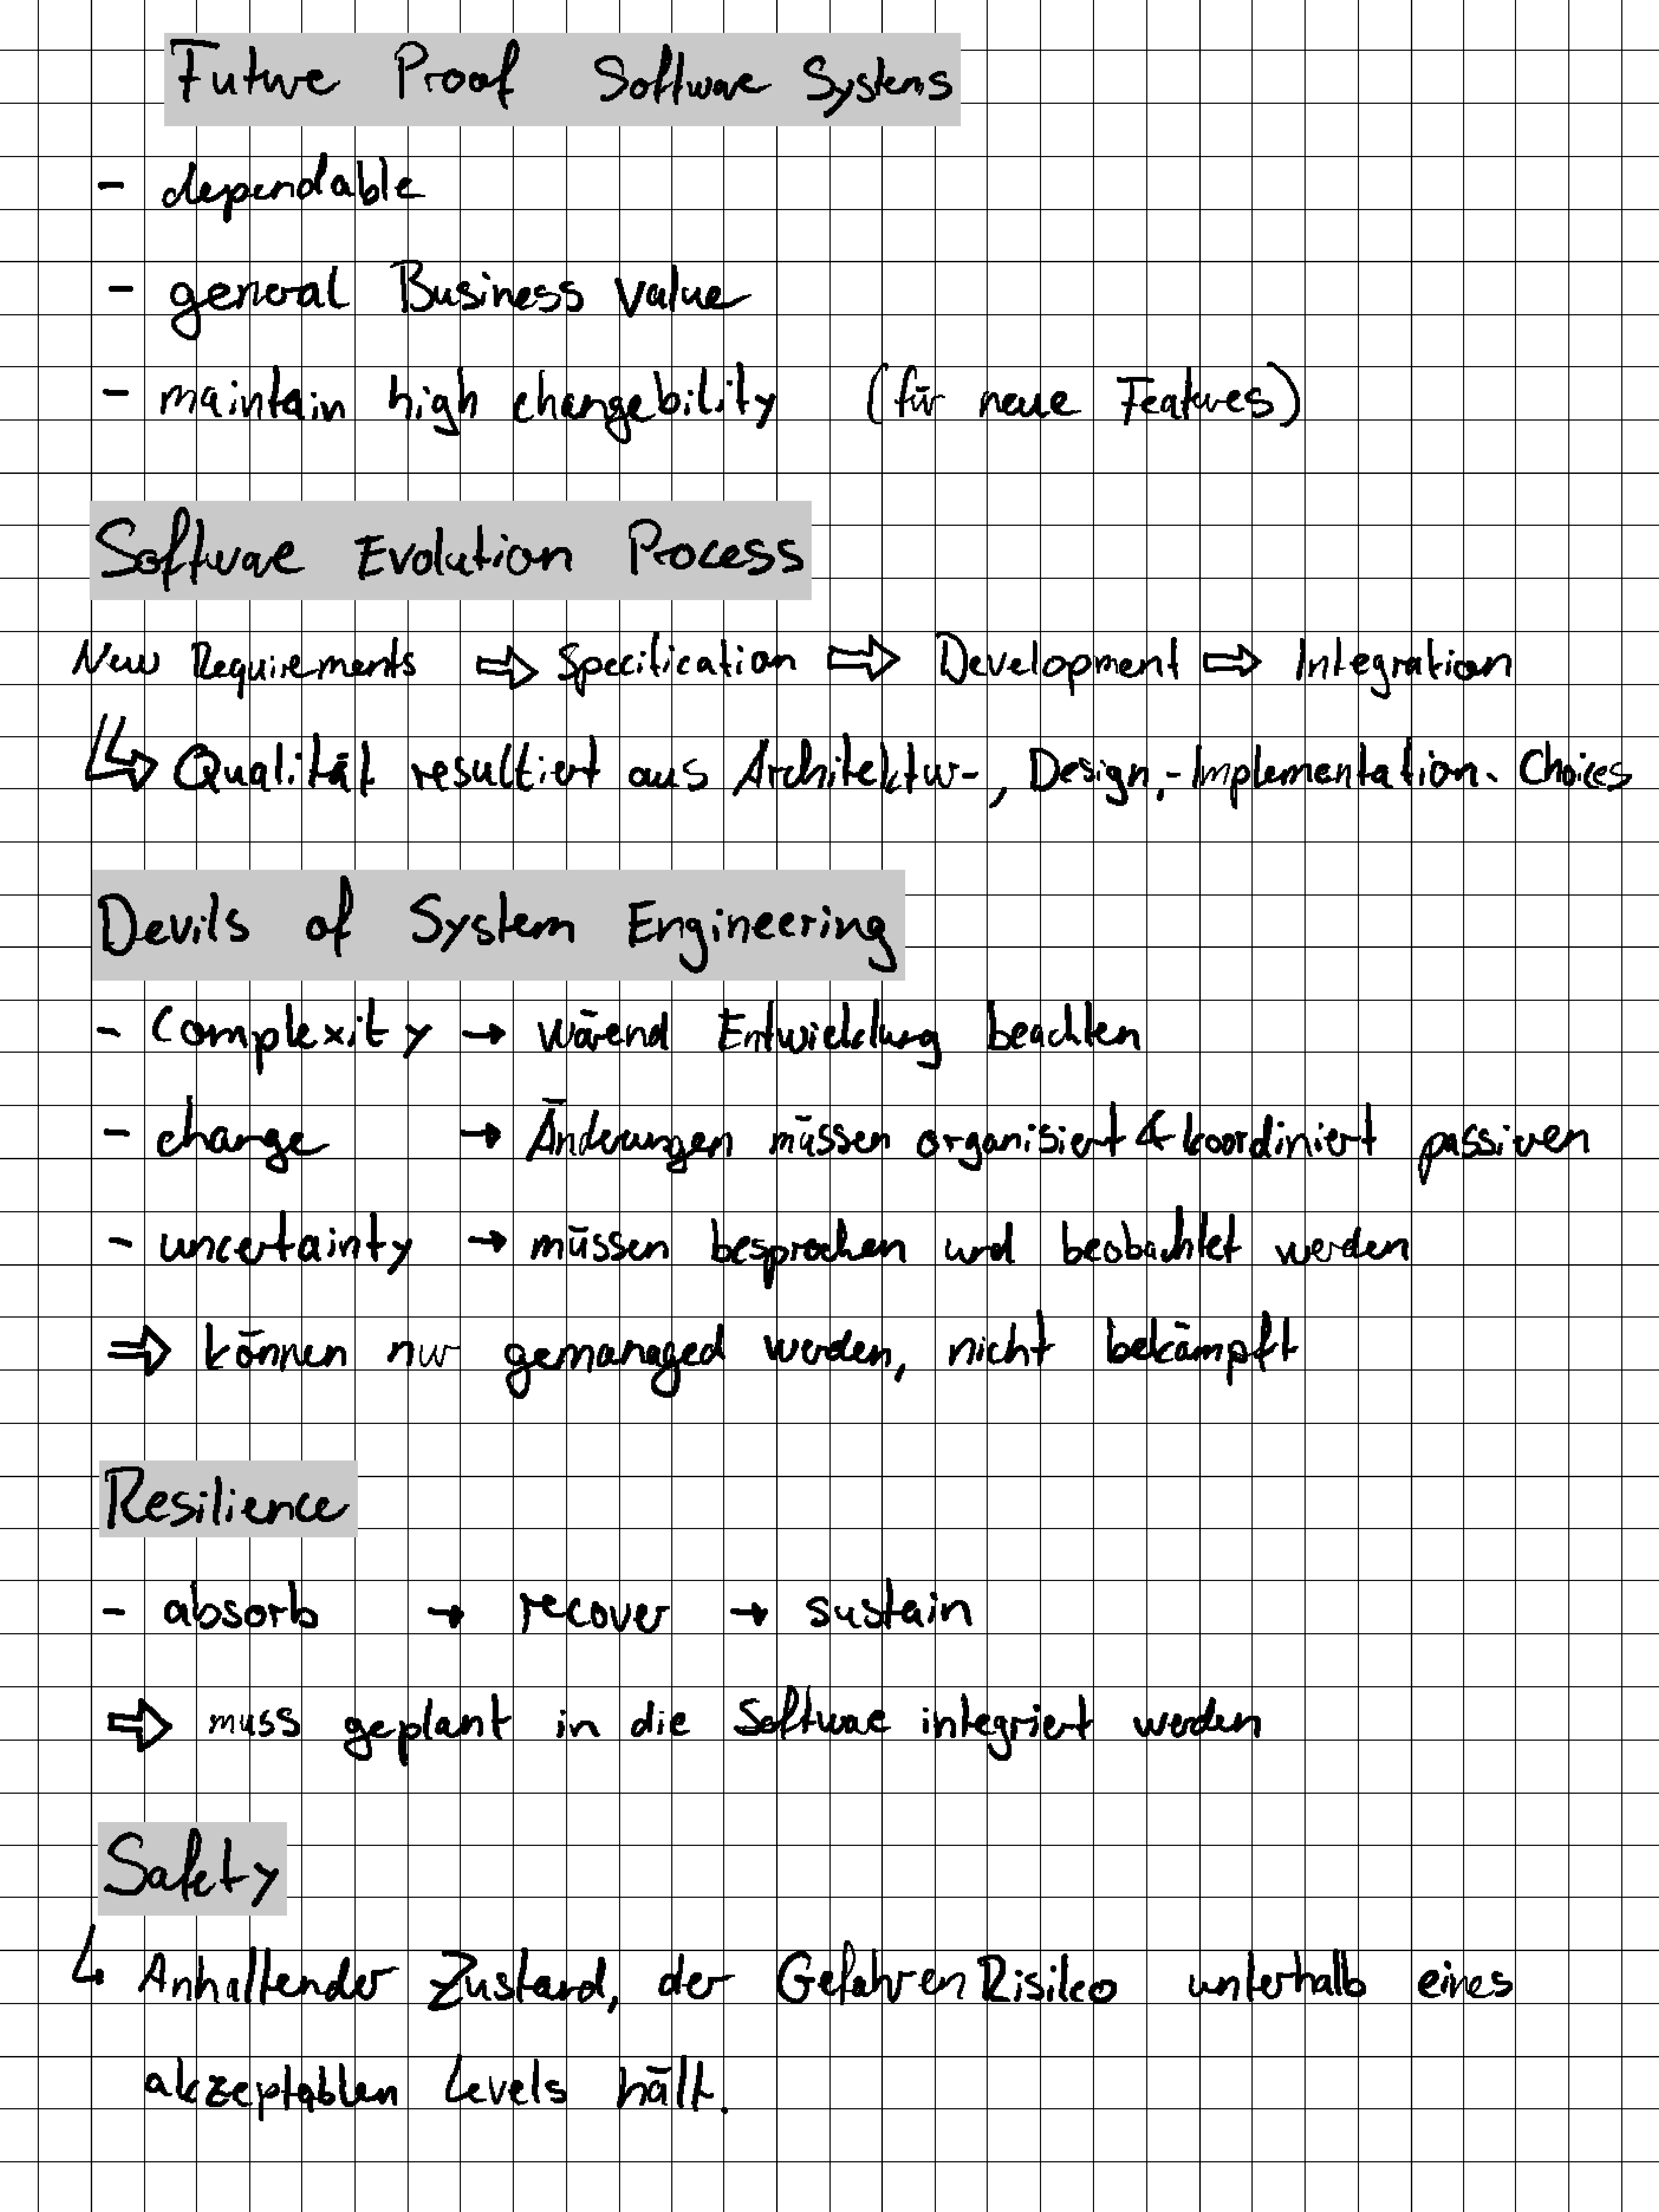 Future Proof Software Systems
- dependable
- general Business Value
- maintain high changebility (für neue Features)
Software Evolution Process
New Requirements ⇒ Specification ⇒ Development ⇒ Integration
↳ Qualität resultiert aus Architektur-, Design,- Implementation- Choices
Devils of System Engineering
- Complexity → wärend Entwicklung beachten
- change → Änderungen müssen organisiert & koordiniert passieren
- uncertainty → müssen besprochen und beobachtet werden
⇒ können nur gemanaged werden, nicht bekämpft
Resilience
- absorb → recover → sustain
⇒ muss geplant in die Software integriert werden
Safety
↳ Anhaltender Zustand, der Gefahren Risiko unterhalb eines
akzeptablen Levels hält.